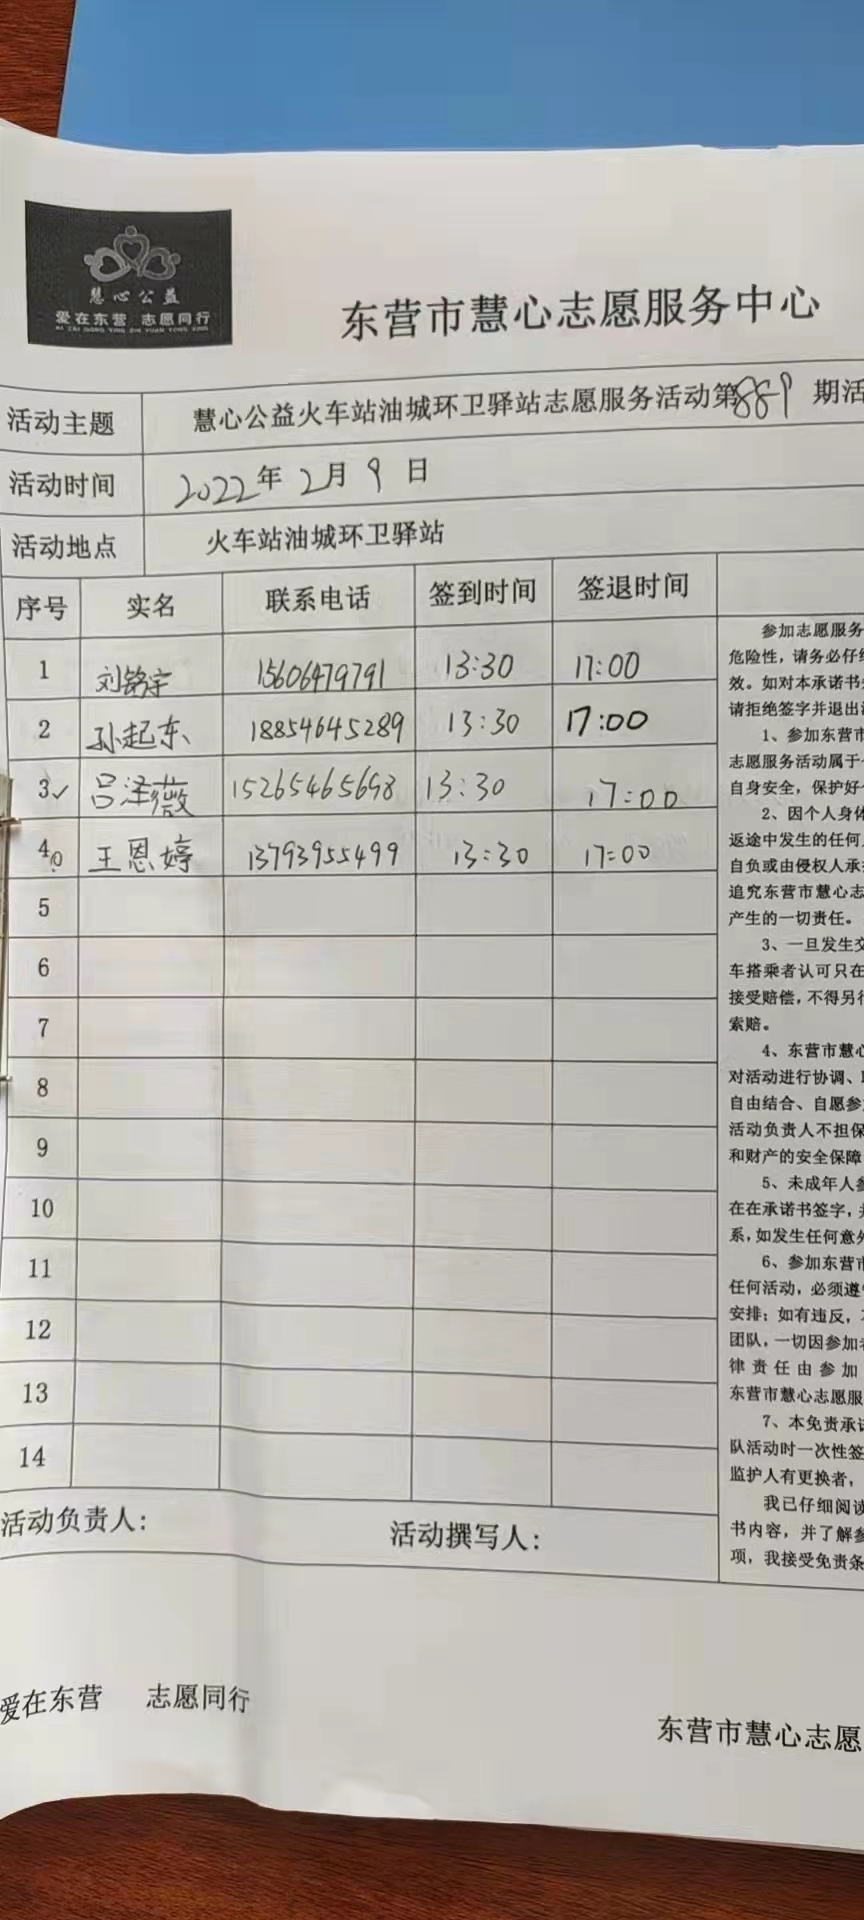 慧心公益
爱在东营 志愿同行
AI ZAI DONG YING ZHI YUAN TONG XING
东营市慧心志愿服务中心
活动主题 慧心公益火车站油城环卫驿站志愿服务活动第889期活
活动时间 2022年2月9日
活动地点 火车站油城环卫驿站
序号 实名 联系电话 签到时间 签退时间
1 刘铭宇 15606479791 13:30 17:00
2 孙起东 18854645289 13:30 17:00
3✓ 吕泽薇 15265465698 13:30 17:00
4 王恩婷 13793955499 13:30 17:00
5
6
7
8
9
10
11
12
13
14
参加志愿服务
危险性，请务必仔细
效。如对本承诺书
请拒绝签字并退出
1、参加东营市
志愿服务活动属于
自身安全，保护好
2、因个人身体
返途中发生的任何
自负或由侵权人承
追究东营市慧心志
产生的一切责任。
3、一旦发生交
车搭乘者认可只在
接受赔偿，不得另行
索赔。
4、东营市慧心
对活动进行协调、
自由结合、自愿参
活动负责人不担保
和财产的安全保障
5、未成年人参
在在承诺书签字，
系，如发生任何意外
6、参加东营市
任何活动，必须遵
安排；如有违反，
团队，一切因参加
律责任由参加
东营市慧心志愿服
7、本免责承诺
队活动时一次性签
监护人有更换者，
我已仔细阅读
书内容，并了解参
项，我接受免责条
活动负责人： 活动撰写人：
爱在东营 志愿同行
东营市慧心志愿